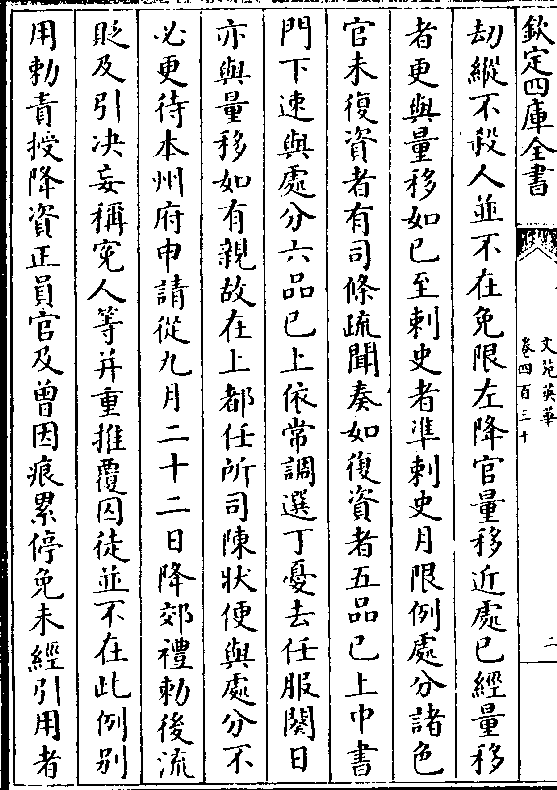 欽定四庫全書
文苑英華
卷四百三十
二
劫縱不殺人並不在免限左降官量移近處已經量移
者更與量移如已至刺史者準刺史月限例處分諸色
官未復資者有司條疏聞奏如復資者五品已上中書
門下速與處分六品已上依常調選丁憂去任服闋日
亦與量移如有親故在上都任所司陳狀便與處分不
必更待本州府申請從九月二十二日降郊禮勅後流
貶及引决妄稱寃人等并重推覆囚徒並不在此例别
用勅責授降資正員官及曾因痕累停免未經引用者